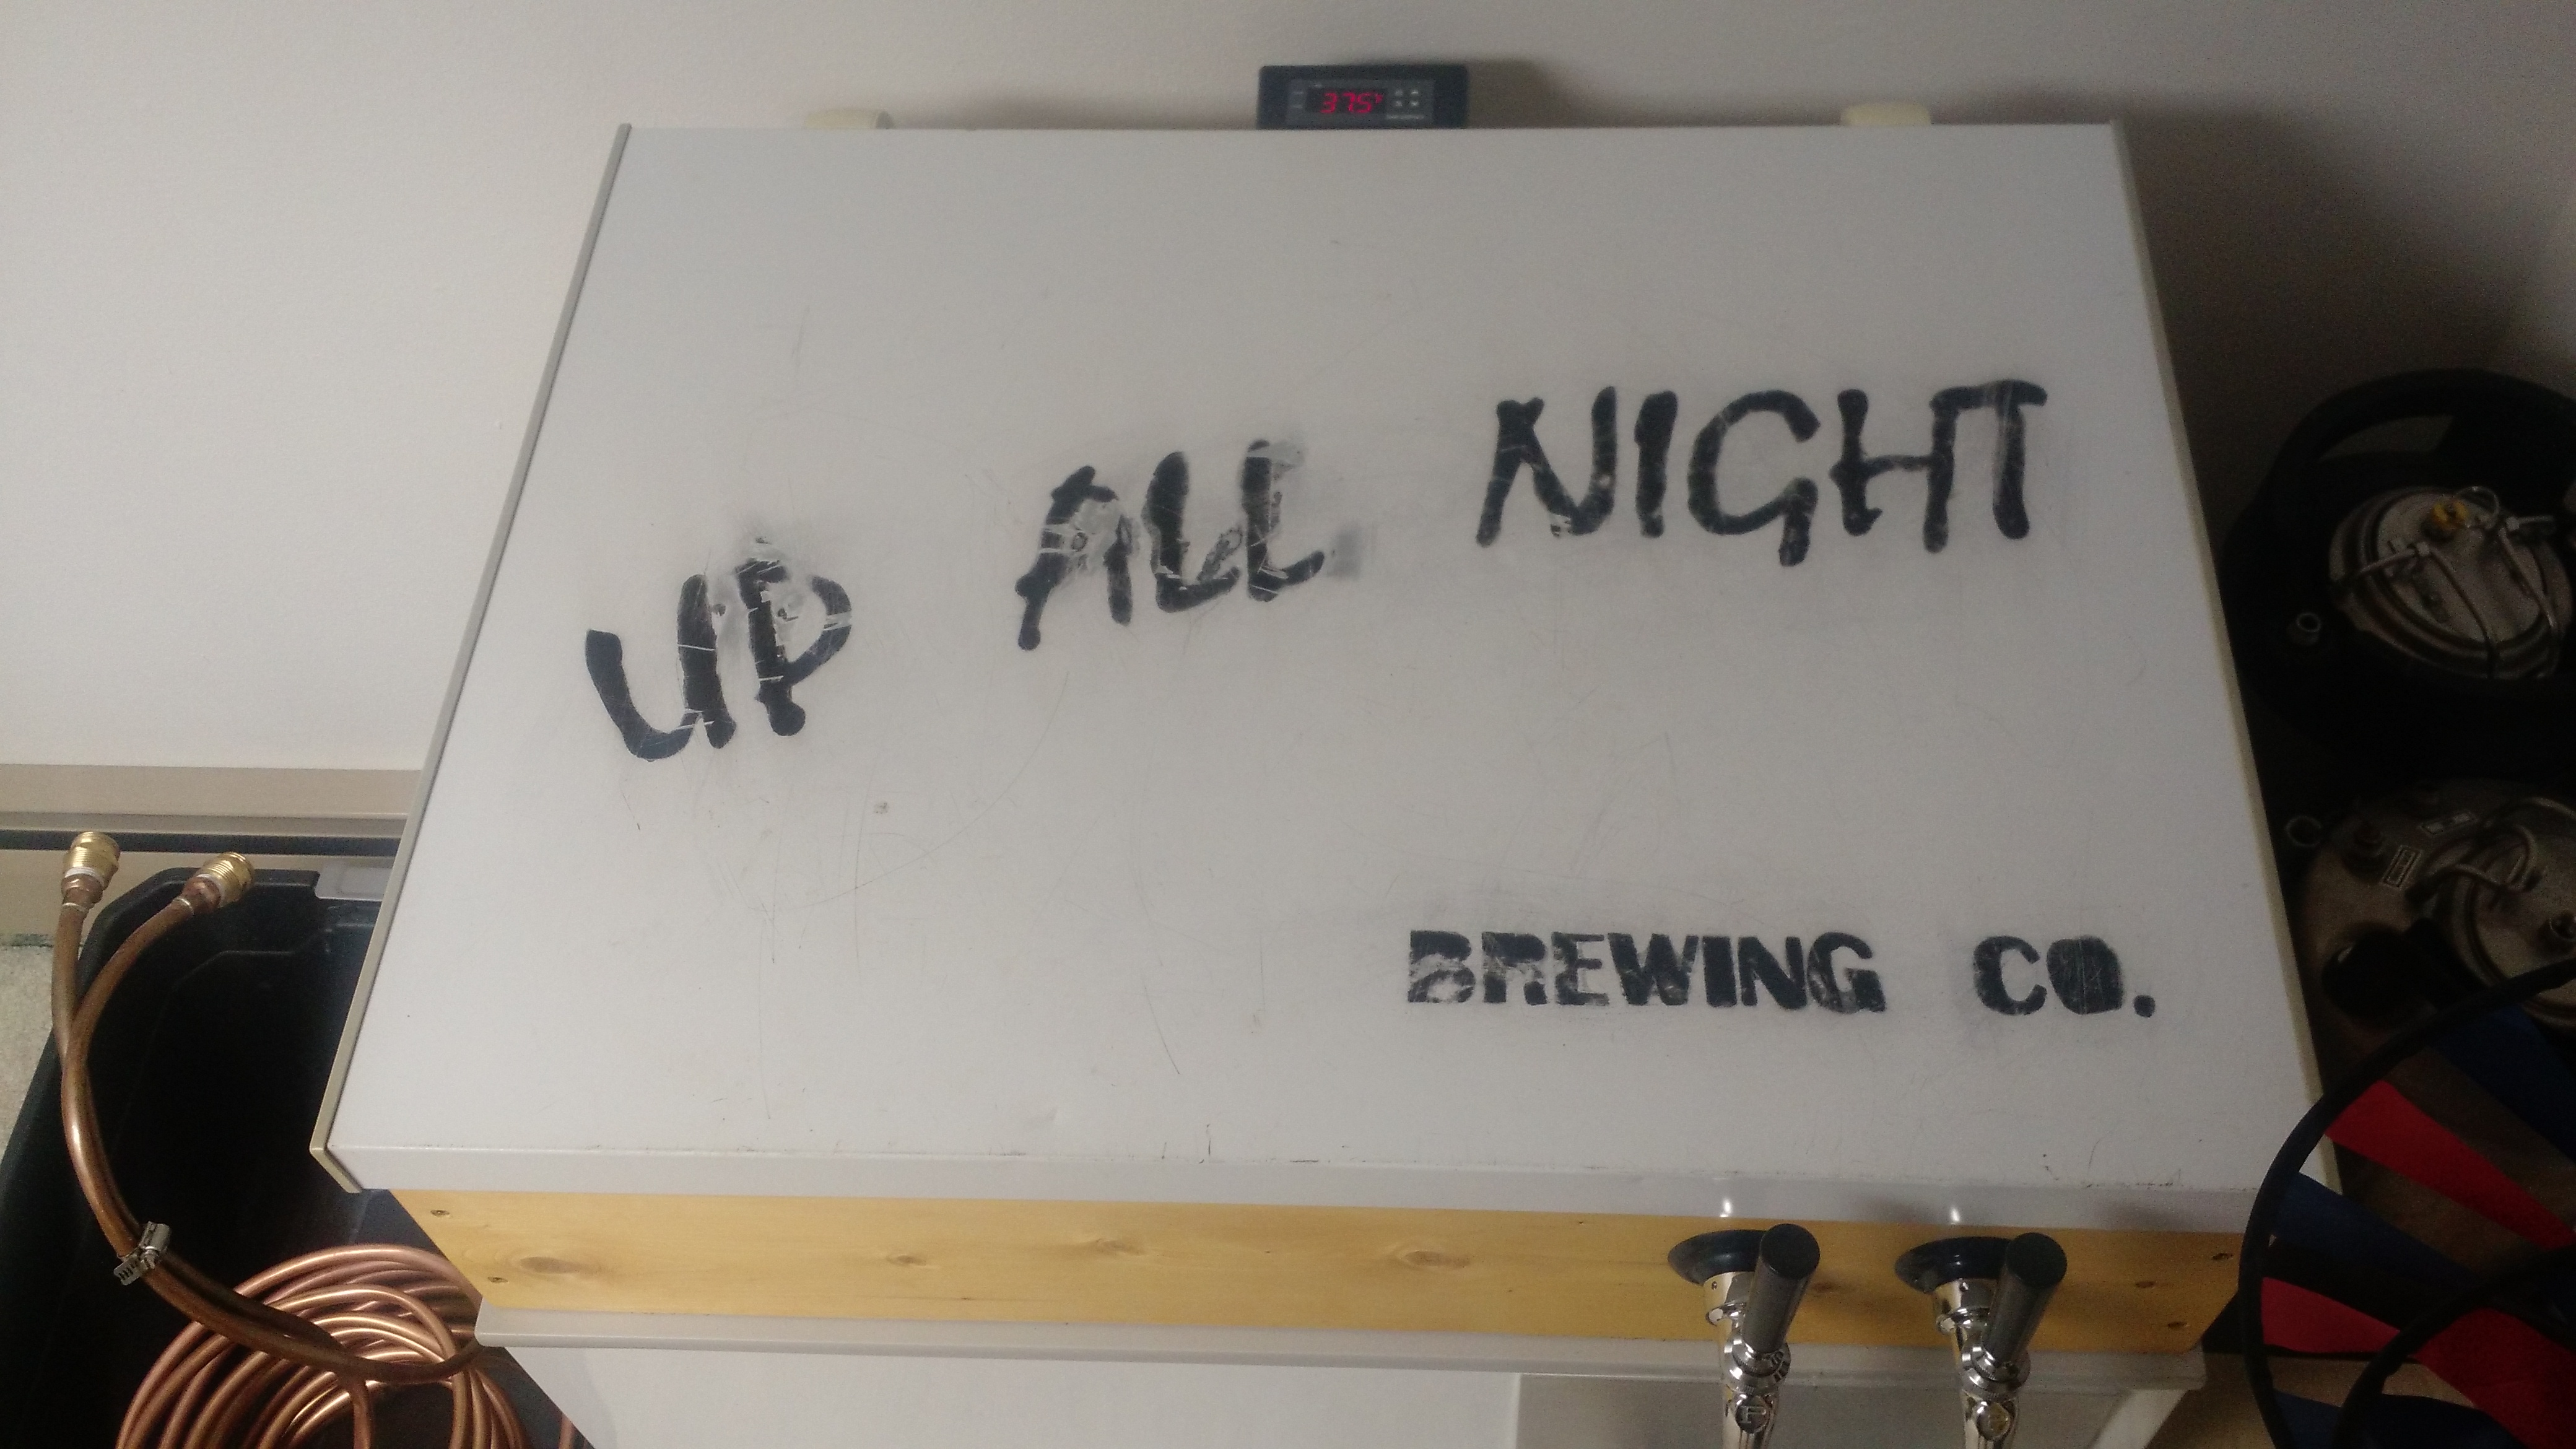 37.5
UP ALL NIGHT
BREWING CO.